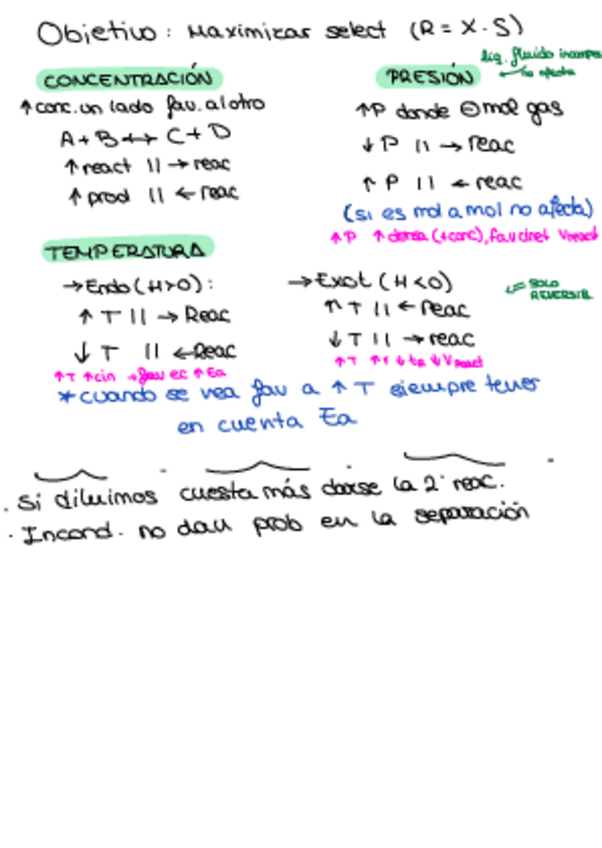 Objetivo : Maximizar select (R = X · S)
liq. fluido incompres
← no afecta
CONCENTRACIÓN
↑ conc. un lado fav. al otro
A + B ↔ C + D
↑ react || → reac
↑ prod || ← reac
PRESIÓN
↑P donde ⊖ mol gas
↓ P || → reac
↑ P || ← reac
(si es mol a mol no afecta)
↑P ↑ densa (+conc), fav cinet Vreact
TEMPERATURA
→ Endo (H>0) :
↑ T || → Reac
↓ T || ← Reac
↑T ↑cin + fav ec ↑ Ea
→ Exot (H<0)
↑ T || ← reac
↓ T || → reac
↑T ↑r ↓ta ↓ Vreact
⇐ SOLO
REVERSIB.
* cuando se vea fav a ↑ T siempre tener
en cuenta Ea
. Si diluimos cuesta más darse la 2ª reac.
· Incond. no dau prob en la separación